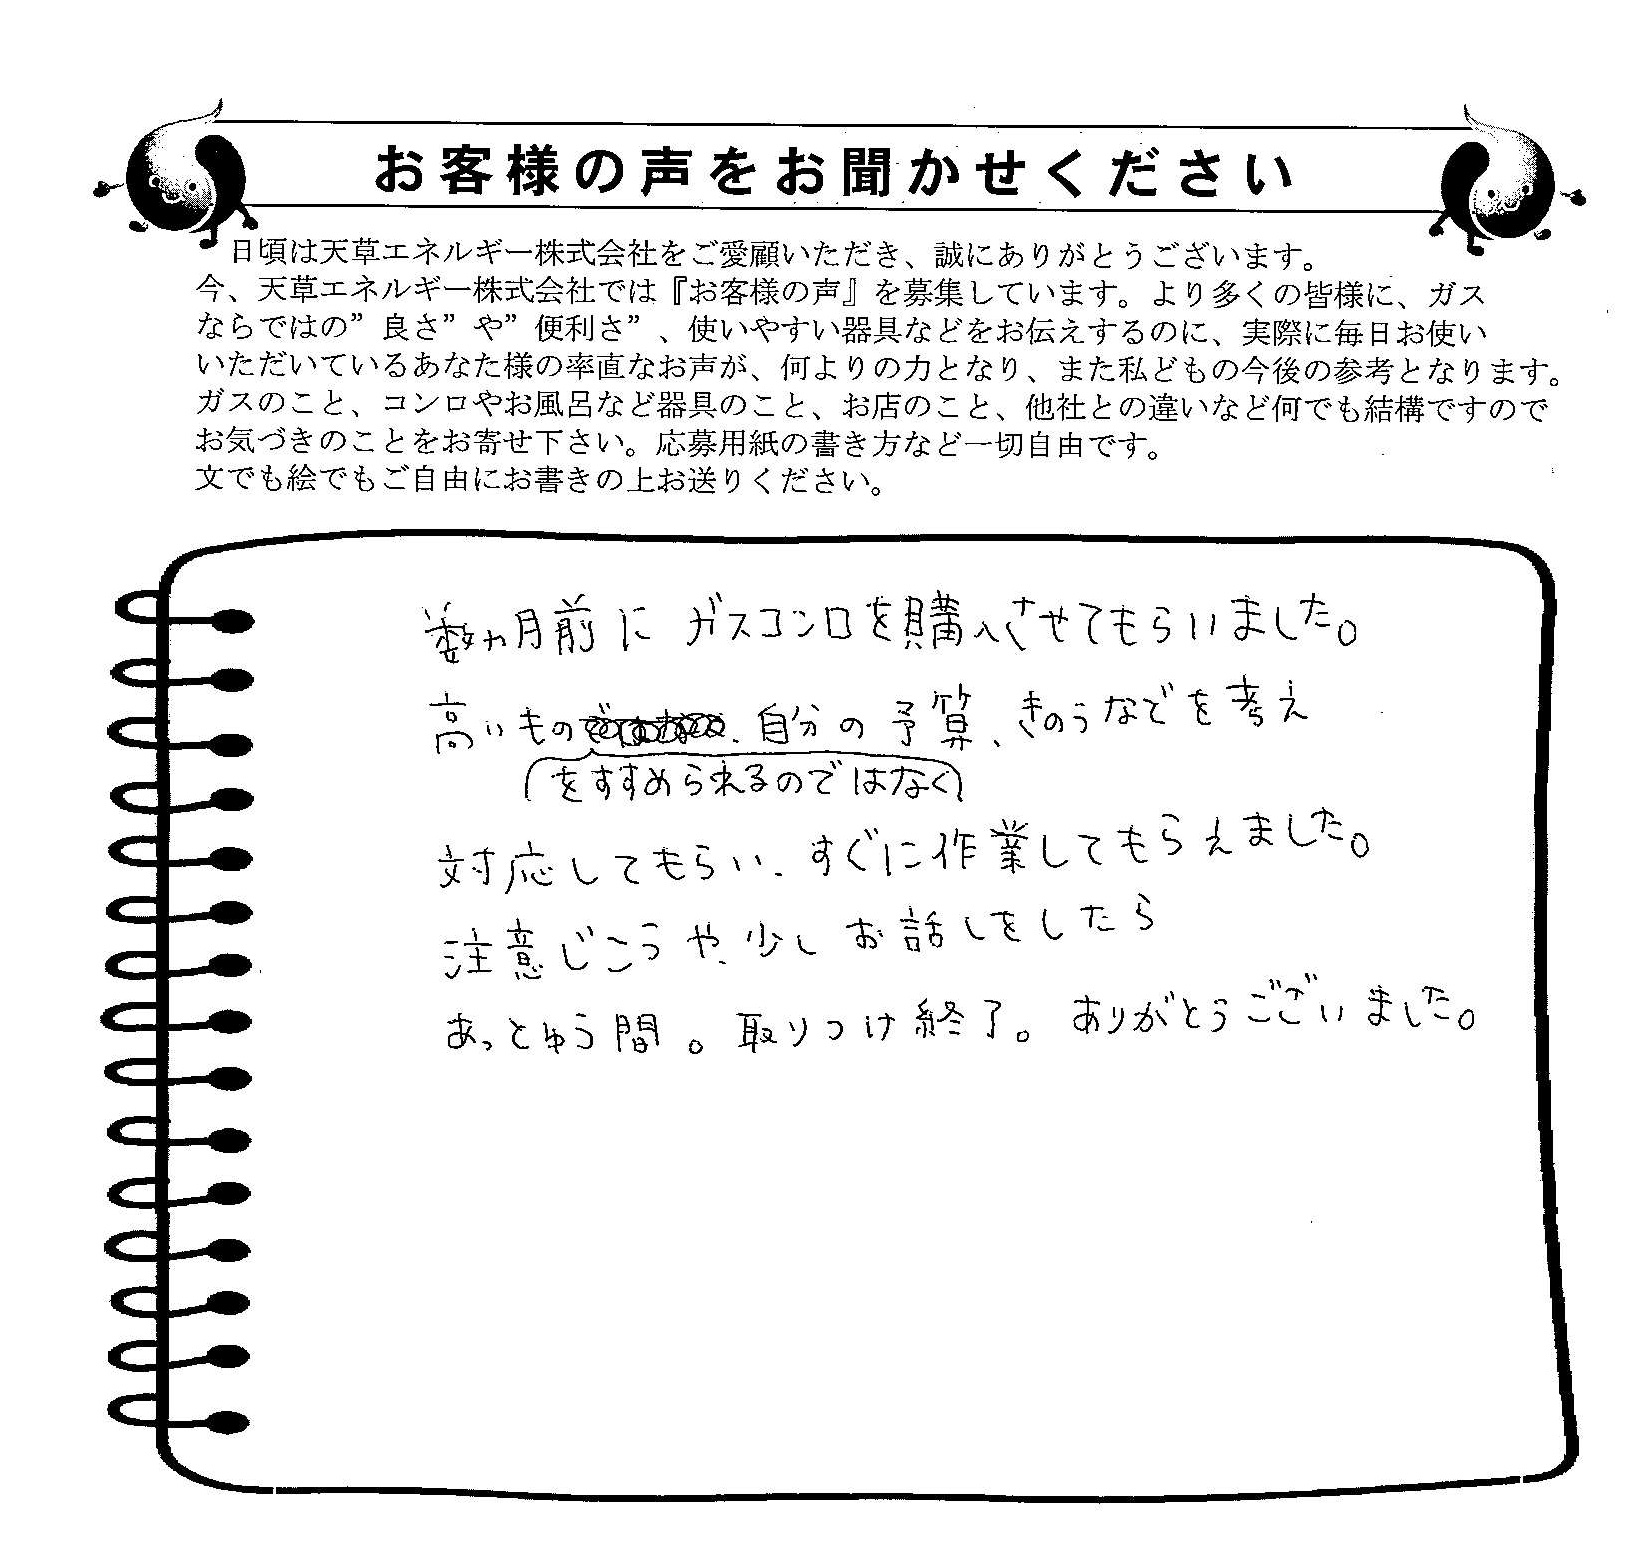 お客様の声をお聞かせください
日頃は天草エネルギー株式会社をご愛顧いただき、誠にありがとうございます。
今、天草エネルギー株式会社では『お客様の声』を募集しています。より多くの皆様に、ガス
ならではの”良さ”や”便利さ”、使いやすい器具などをお伝えするのに、実際に毎日お使い
いただいているあなた様の率直なお声が、何よりの力となり、また私どもの今後の参考となります。
ガスのこと、コンロやお風呂など器具のこと、お店のこと、他社との違いなど何でも結構ですので
お気づきのことをお寄せ下さい。応募用紙の書き方など一切自由です。
文でも絵でもご自由にお書きの上お送りください。
数ヵ月前に ガスコンロを購入させてもらいました。
高いもの、自分の予算、きのうなどを考え
をすすめられるのではなく
対応してもらい、すぐに作業してもらえました。
注意じこうや、少しお話しをしたら
あっとゆう間。取りつけ終了。ありがとうございました。